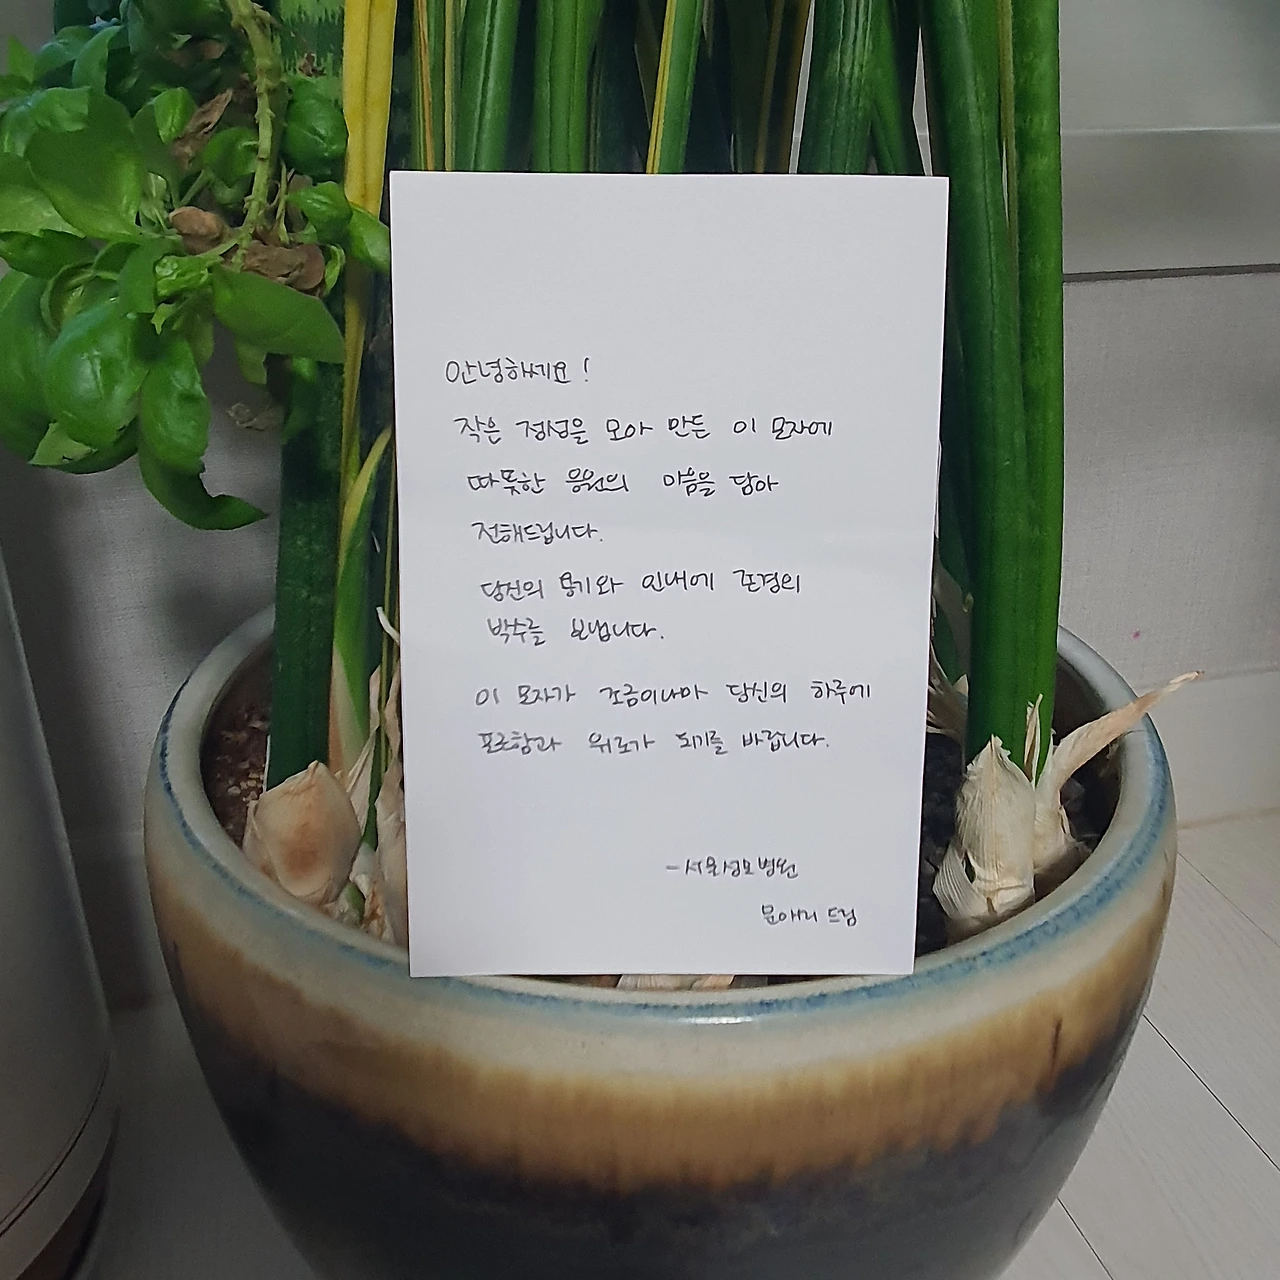 안녕하세요!
작은 정성을 모아 만든 이 모자에
따뜻한 응원의 마음을 담아
전해드립니다.
당신의 용기와 인내에 존경의
박수를 보냅니다.
이 모자가 조금이나마 당신의 하루에
포근함과 위로가 되기를 바랍니다.
- 서울성모병원
문애리 드림